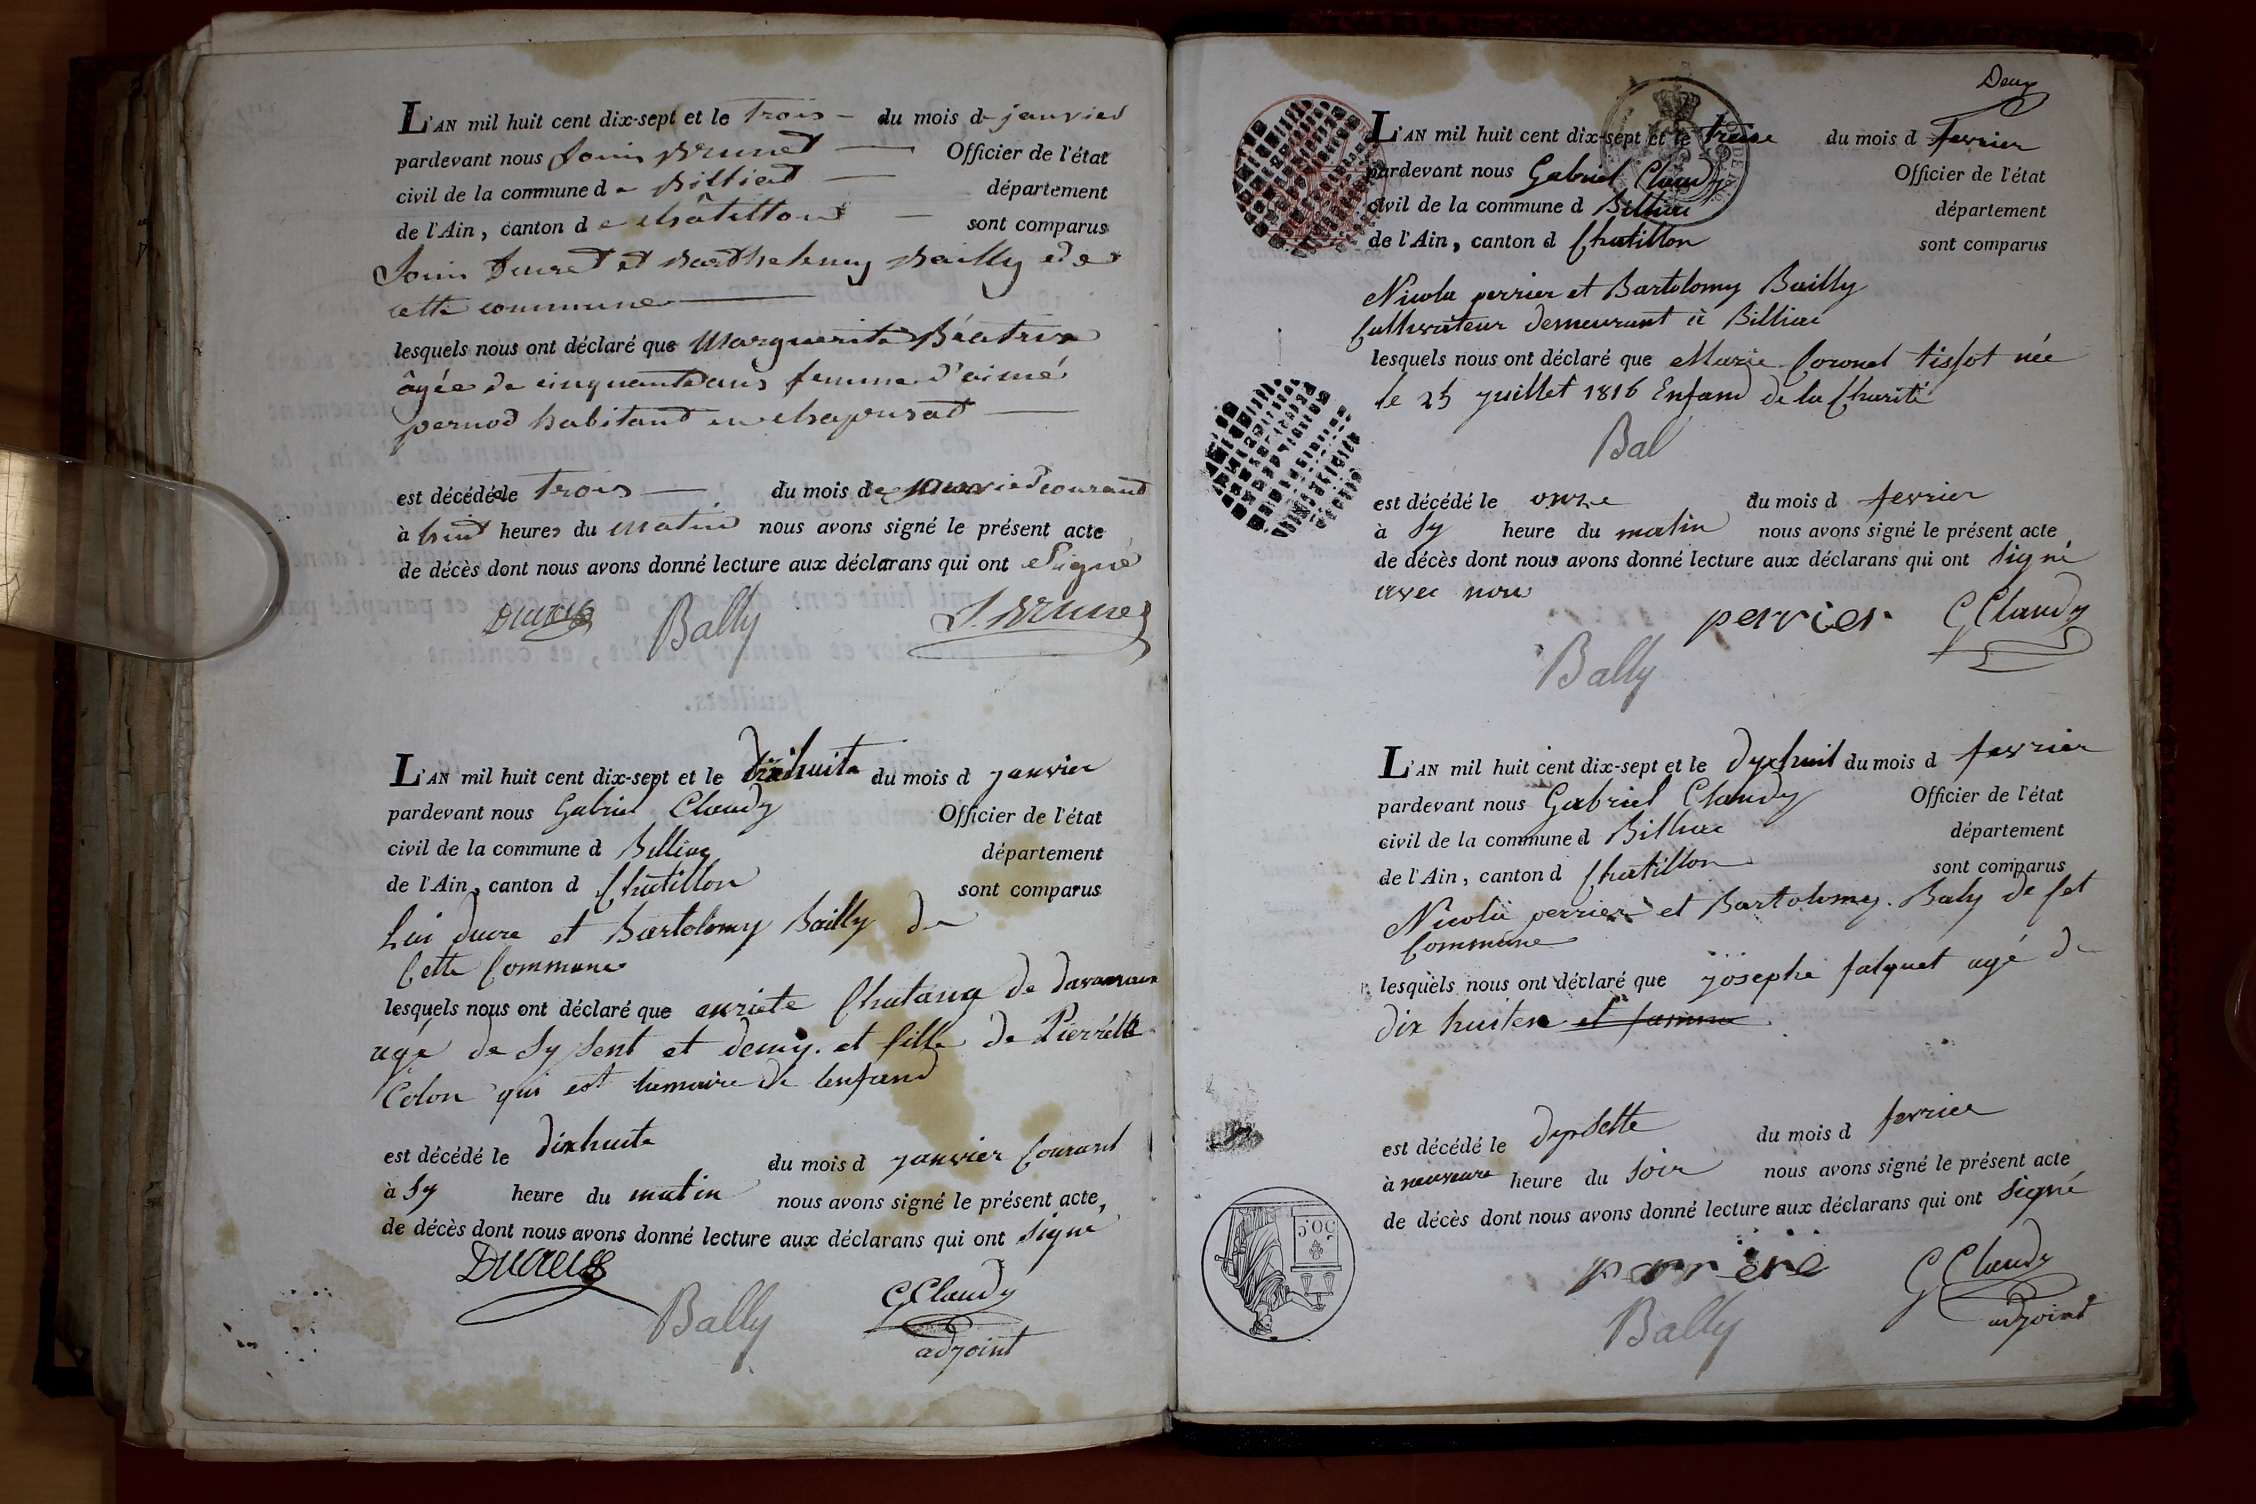 L'AN mil huit cent dix-sept et le trois du mois de janvier
pardevant nous Louis Brunet Officier de l'état
civil de la commune de Billiat département
de l'Ain, canton de Châtillon sont comparus
Louis Ducret et Barthelemy Bailly de
cette commune
lesquels nous ont déclaré que Marguerite Béatrix
âgée de cinquante ans femme d'aimé
pernod habitant en
est décédée le trois du mois de janvier courant
à huit heures du matin nous avons signé le présent acte
de décès dont nous avons donné lecture aux déclarans qui ont signé
Bally
L'AN mil huit cent dix-sept et le dixhuite du mois d janvier
pardevant nous Gabriel Claudy Officier de l'état
civil de la commune d Billiac département
de l'Ain, canton d Chatillon sont comparus
Lui ducre et Bartolomy Bailly de
Cette Commune
lesquels nous ont déclaré que enriete Chatana de
agé de sy sent et demy. et fille de Pierrette
Colon qui est lamaire de lenfand
est décédé le dixhuite du mois d janvier Courant
à sy heure du matin nous avons signé le présent acte,
de décès dont nous avons donné lecture aux déclarans qui ont signé
Bally GClaudy
adjoint
Deux
L'AN mil huit cent dix-sept et le treise du mois d fevrier
pardevant nous Gabriel Claudy Officier de l'état
civil de la commune d Billiac département
de l'Ain, canton d Chatillon sont comparus
Nicola perrier et Bartolomy Bailly
Cultivateur demeurant à Billiac
lesquels nous ont déclaré que Marie Coronel tissot née
le 25 juillet 1816 Enfand de la Charité
Bal
est décédé le onze du mois d fevrier
à sy heure du matin nous avons signé le présent acte
de décès dont nous avons donné lecture aux déclarans qui ont signé
avec nous
perrier GClaudy
Bally
L'AN mil huit cent dix-sept et le dyxhuit du mois d fevrier
pardevant nous Gabriel Claudy Officier de l'état
civil de la commune d Billiac département
de l'Ain, canton d Chatillon sont comparus
Nicola perrier et Bartolomy Baly de set
Commune
lesquels nous ont déclaré que josephe falquet agé de
dix huitene et famme
est décédé le dyxsette du mois d fevrier
à heure du soir nous avons signé le présent acte
de décès dont nous avons donné lecture aux déclarans qui ont signé
GClaudy
Bally adjoint
50 C.